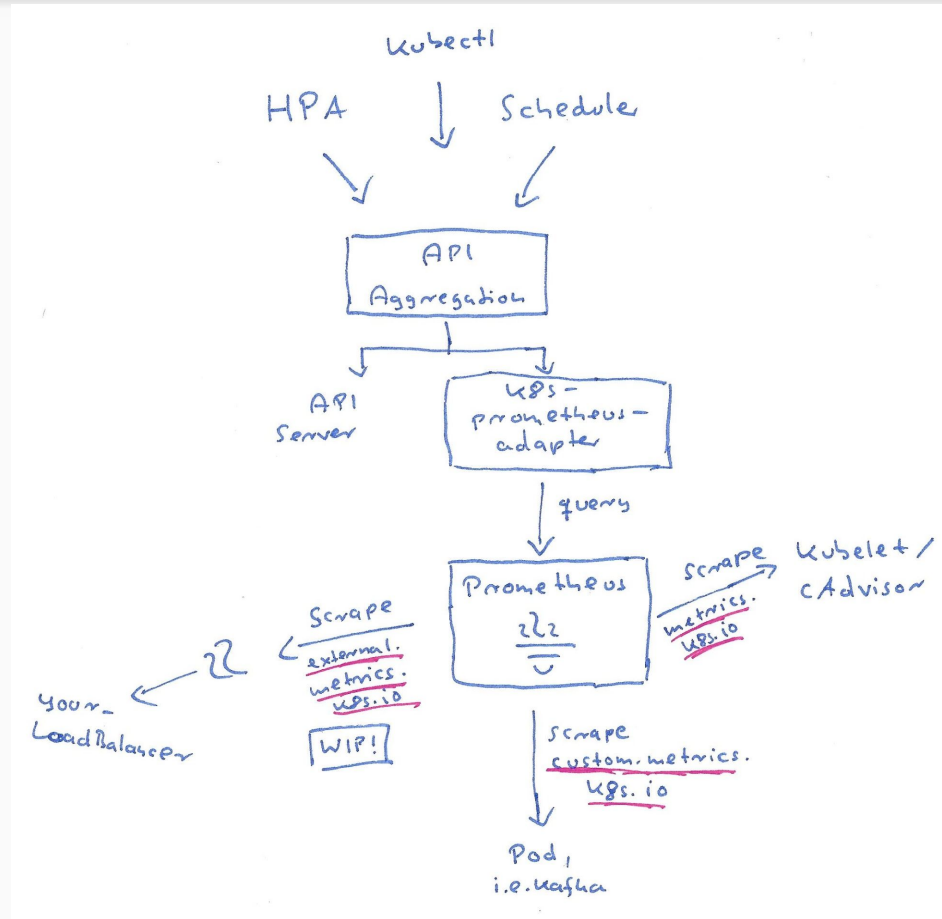 Kubectl
HPA
Scheduler
API
Aggregation
API
Server
k8s-
prometheus-
adapter
query
Prometheus
scrape
metrics.
k8s.io
Kubelet/
cAdvisor
Scrape
external.
metrics.
k8s.io
WIP!
your_
LoadBalancer
scrape
custom.metrics.
k8s.io
Pod,
i.e. Kafka